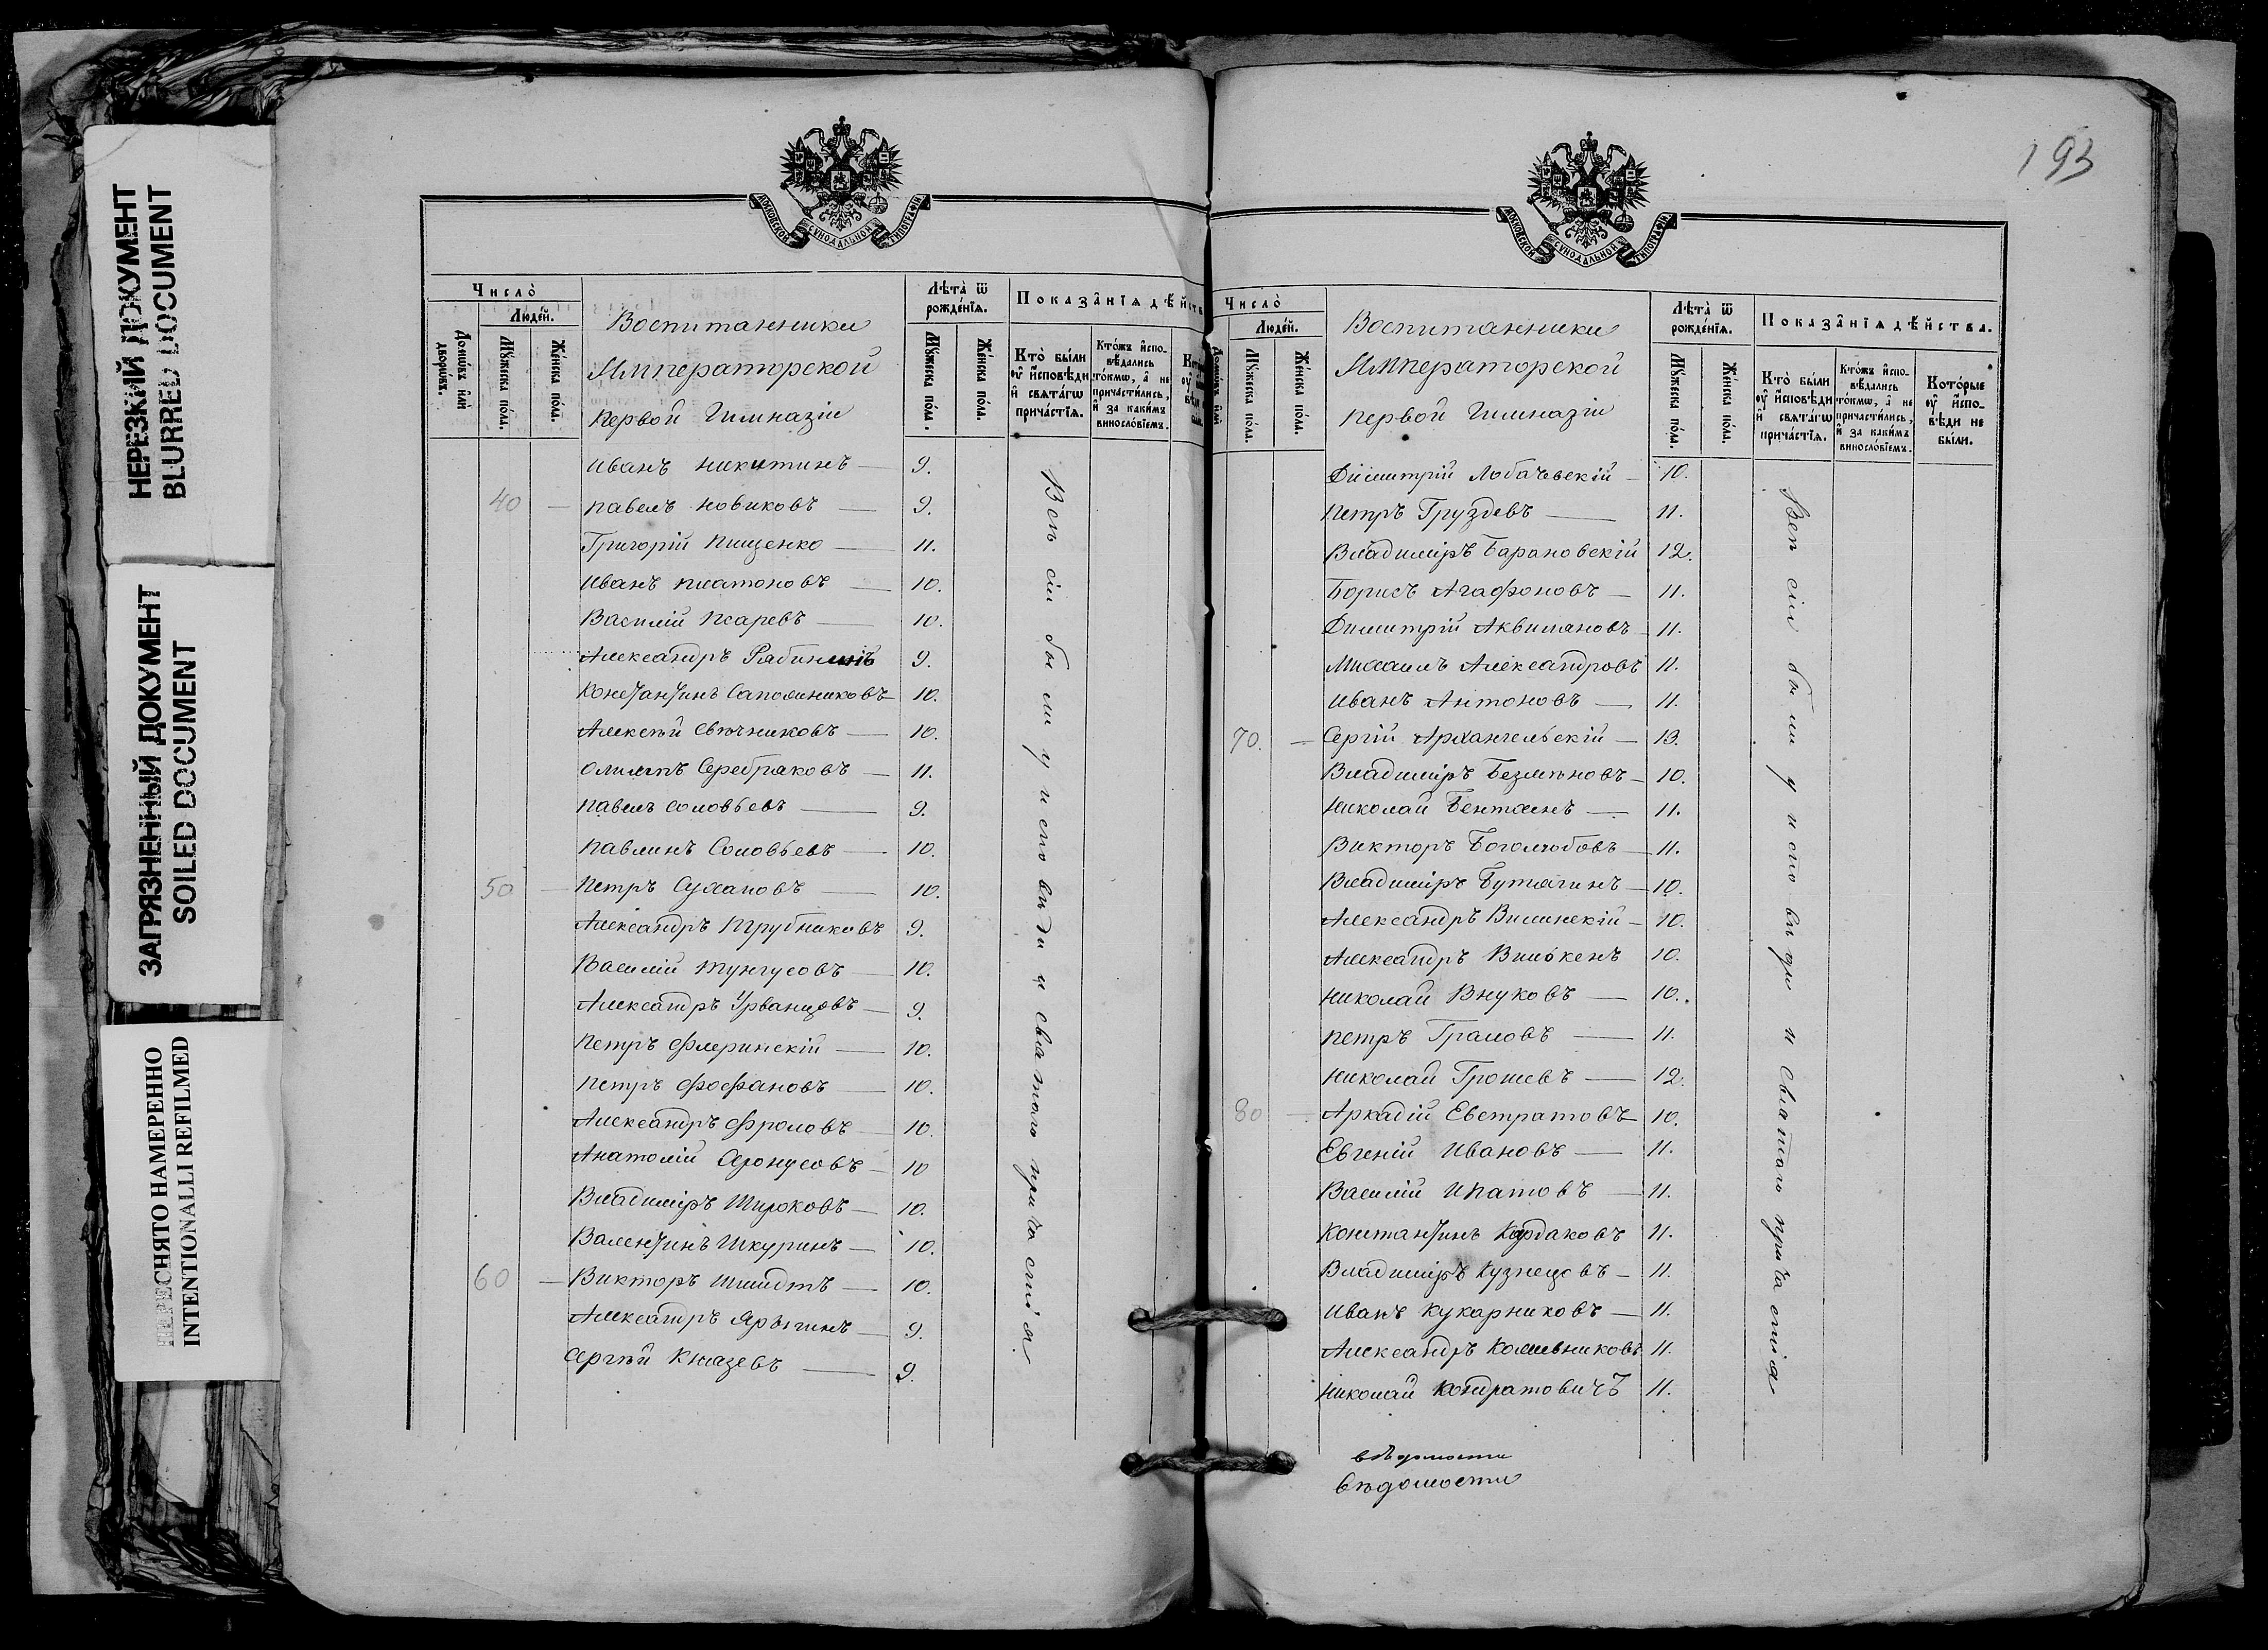 НЕРЕЗКИЙ ДОКУМЕНТ
BLURRED DOCUMENT
ЗАГРЯЗНЕННЫЙ ДОКУМЕНТ
SOILED DOCUMENT
ПЕРЕСНЯТО НАМЕРЕННО
INTENTIONALLI REFILMED
МОСКОВСКОЙ СѴНОДАЛЬНОЙ ТИПОГРАФІИ
Число̀
Люде́й.
Домѡ́въ и҆лѝ дворѡ́въ.
Мꙋ́жеска по́ла.
Же́нска по́ла.
Воспитанники
Императорской
Первой Гимназіи
Лѣта̀ ѿ рожде́нїѧ.
Мꙋ́жеска по́ла.
Же́нска по́ла.
Показа̑нїѧ дѣ́йств
Кто̀ бы́ли ᲂу҆ и҆́сповѣди и҆ свѧта́гѡ прича́стїѧ.
Кто́жъ и҆спо-вѣ́дались то́кмѡ, а҆ не причасти́лись, и҆ за каки́мъ винослѡ́вїемъ.
Иванъ Никитинъ — 9.
40 — Павелъ Новиковъ — 9.
Григорій Пищенко — 11.
Иванъ Платоновъ — 10.
Василій Псаревъ — 10.
Александръ Рябининъ 9.
Константинъ Сапожниковъ — 10.
Алексѣй Свѣчниковъ — 10.
Олимпъ Серебряковъ — 11.
Павелъ Соловьевъ — 9.
Павлинъ Соловьевъ — 10.
50 — Петръ Сухановъ — 10.
Александръ Трубниковъ 9.
Василій Тунгусовъ — 10.
Александръ Урванцовъ — 9.
Петръ Флеринскій — 10.
Петръ Фофановъ — 10.
Александръ Фроловъ — 10.
Анатолій — 10
Владиміръ Широковъ — 10.
Валентинъ Шкуринъ — 10.
60 — Викторъ Шмидтъ — 10.
Александръ Ярыгинъ — 9.
Сергѣй Князевъ — 9.
Всѣ сіи были у исповѣди и святаго причастія.
193
МОСКОВСКОЙ СѴНОДАЛЬНОЙ ТИПОГРАФІИ
Число̀
Люде́й.
Домѡ́въ и҆лѝ
Мꙋ́жеска по́ла.
Же́нска по́ла.
Воспитанники
Императорской
Первой Гимназіи
Лѣта̀ ѿ рожде́нїѧ.
Мꙋ́жеска по́ла.
Же́нска по́ла.
Показа̑нїѧ дѣ́йства.
Кто̀ бы́ли ᲂу҆ и҆́сповѣди и҆ свѧта́гѡ прича́стїѧ.
Кто́жъ и҆спо-вѣ́дались то́кмѡ, а҆ не причасти́лись, и҆ за каки́мъ винослѡ́вїемъ.
Кото́рые ᲂу҆ и҆́спо-вѣди не бы́ли.
Димитрій Лобачевскій — 10.
Петръ Груздевъ — 11.
Владиміръ Барановскій 12.
Борисъ Агафоновъ — 11.
Димитрій Аквилановъ — 11.
Михаилъ Александровъ 11.
Иванъ Антоновъ — 11.
70. — Сергій Архангельскій — 13.
Владиміръ Безмѣновъ — 10.
Николай — 11.
Викторъ Боголюбовъ — 11.
Владиміръ Бутягинъ — 10.
Александръ Вилинскій — 10.
Александръ Вилькенъ 10.
Николай Внуковъ — 10.
Петръ Грамовъ — 11.
Николай Грошевъ — 12.
80 — Аркадій Евстратовъ 10.
Евгеній Ивановъ — 11.
Василій Ипатовъ — 11.
Константинъ Кардаковъ 11.
Владиміръ Кузнецовъ — 11.
Иванъ Кукарниковъ — 11.
Александръ 11.
Николай Кондратовичъ 11.
Всѣ сіи были у исповѣди и святаго причастія
вѣдомости
вѣдомости